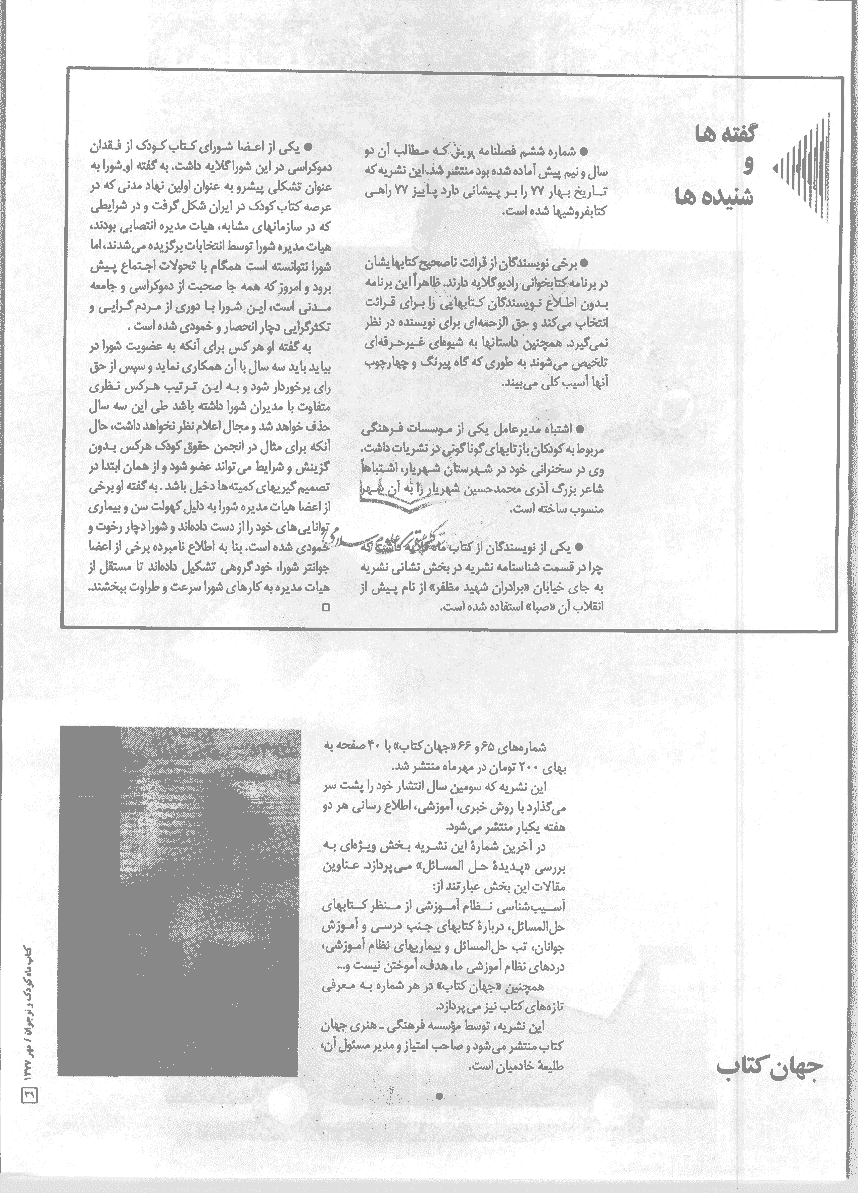 گفته ها
و
شنیده ها
● شماره ششم فصلنامه پویش که مطالب آن دو
سال و نیم پیش آماده شده بود منتشر شد. این نشریه که
تاریخ بهار ۷۷ را بر پیشانی دارد پاییز ۷۷ راهی
کتابفروشیها شده است.
● برخی نویسندگان از قرائت ناصحیح کتابهایشان
در برنامه کتابخوانی رادیو گلایه دارند. ظاهراً این برنامه
بدون اطلاع نویسندگان کتابهایی را برای قرائت
انتخاب می‌کند و حق الزحمه‌ای برای نویسنده در نظر
نمی‌گیرد. همچنین داستانها به شیوه‌ای غیرحرفه‌ای
تلخیص می‌شوند به طوری که گاه پیرنگ و چهارچوب
آنها آسیب کلی می‌بیند.
● اشتباه مدیرعامل یکی از موسسات فرهنگی
مربوط به کودکان بازتابهای گوناگونی در نشریات داشت.
وی در سخنرانی خود در شهرستان شهریار، اشتباهاً
شاعر بزرگ آذری محمدحسین شهریار را به آن شهر
منسوب ساخته است.
● یکی از نویسندگان از کتاب ماه گلایه داشت که
چرا در قسمت شناسنامه نشریه در بخش نشانی نشریه
به جای خیابان «برادران شهید مظفر» از نام پیش از
انقلاب آن «صبا» استفاده شده است.
● یکی از اعضا شورای کتاب کودک از فقدان
دموکراسی در این شورا گلایه داشت. به گفته او شورا به
عنوان تشکلی پیشرو به عنوان اولین نهاد مدنی که در
عرصه کتاب کودک در ایران شکل گرفت و در شرایطی
که در سازمانهای مشابه، هیات مدیره انتصابی بودند،
هیات مدیره شورا توسط انتخابات برگزیده می‌شدند، اما
شورا نتوانسته است همگام با تحولات اجتماع پیش
برود و امروز که همه جا صحبت از دموکراسی و جامعه
مدنی است، این شورا با دوری از مردم گرایی و
تکثرگرایی دچار انحصار و خمودی شده است .
به گفته او هر کس برای آنکه به عضویت شورا در
بیاید باید سه سال با آن همکاری نماید و سپس از حق
رای برخوردار شود و به این ترتیب هرکس نظری
متفاوت با مدیران شورا داشته باشد طی این سه سال
حذف خواهد شد و مجال اعلام نظر نخواهد داشت، حال
آنکه برای مثال در انجمن حقوق کودک هرکس بدون
گزینش و شرایط می تواند عضو شود و از همان ابتدا در
تصمیم گیریهای کمیته‌ها دخیل باشد . به گفته او برخی
از اعضا هیات مدیره شورا به دلیل کهولت سن و بیماری
توانایی‌های خود را از دست داده‌اند و شورا دچار رخوت و
خمودی شده است. بنا به اطلاع نامبرده برخی از اعضا
جوانتر شورا، خود گروهی تشکیل داده‌اند تا مستقل از
هیات مدیره به کارهای شورا سرعت و طراوت ببخشند.
□
جهان کتاب
شماره‌های ۶۵ و ۶۶ «جهان کتاب» با ۴۰ صفحه به
بهای ۲۰۰ تومان در مهرماه منتشر شد.
این نشریه که سومین سال انتشار خود را پشت سر
می‌گذارد با روش خبری، آموزشی، اطلاع رسانی هر دو
هفته یکبار منتشر می‌شود.
در آخرین شمارهٔ این نشریه بخش ویژه‌ای به
بررسی «پدیدهٔ حل المسائل» می‌پردازد. عناوین
مقالات این بخش عبارتند از:
آسیب‌شناسی نظام آموزشی از منظر کتابهای
حل‌المسائل، دربارهٔ کتابهای جنب درسی و آموزش
جوانان، تب حل‌المسائل و بیماریهای نظام آموزشی،
دردهای نظام آموزشی ما، هدف، آموختن نیست و...
همچنین «جهان کتاب» در هر شماره به معرفی
تازه‌های کتاب نیز می‌پردازد.
این نشریه، توسط مؤسسه فرهنگی ـ هنری جهان
کتاب منتشر می‌شود و صاحب امتیاز و مدیر مسئول آن،
طلیعهٔ خادمیان است.
کتاب ماه کودک و نوجوان / مهر ۱۳۷۷
۳۹